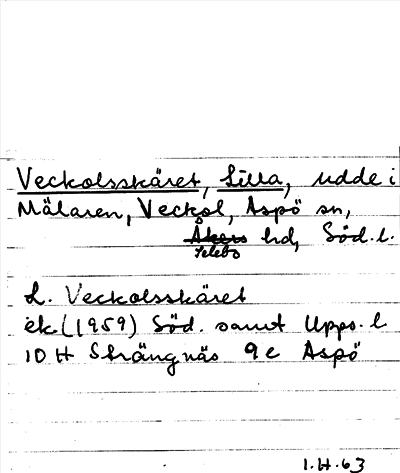 Veckolsskäret, Lilla, udde i
Mälaren, Veckol, Aspö sn,
Åkers hd, Söd. l.
Selebo
L. Veckolsskäret
ek (1959) Söd. samt Upps. l
10 H Strängnäs 9 c Aspö
I.H.63